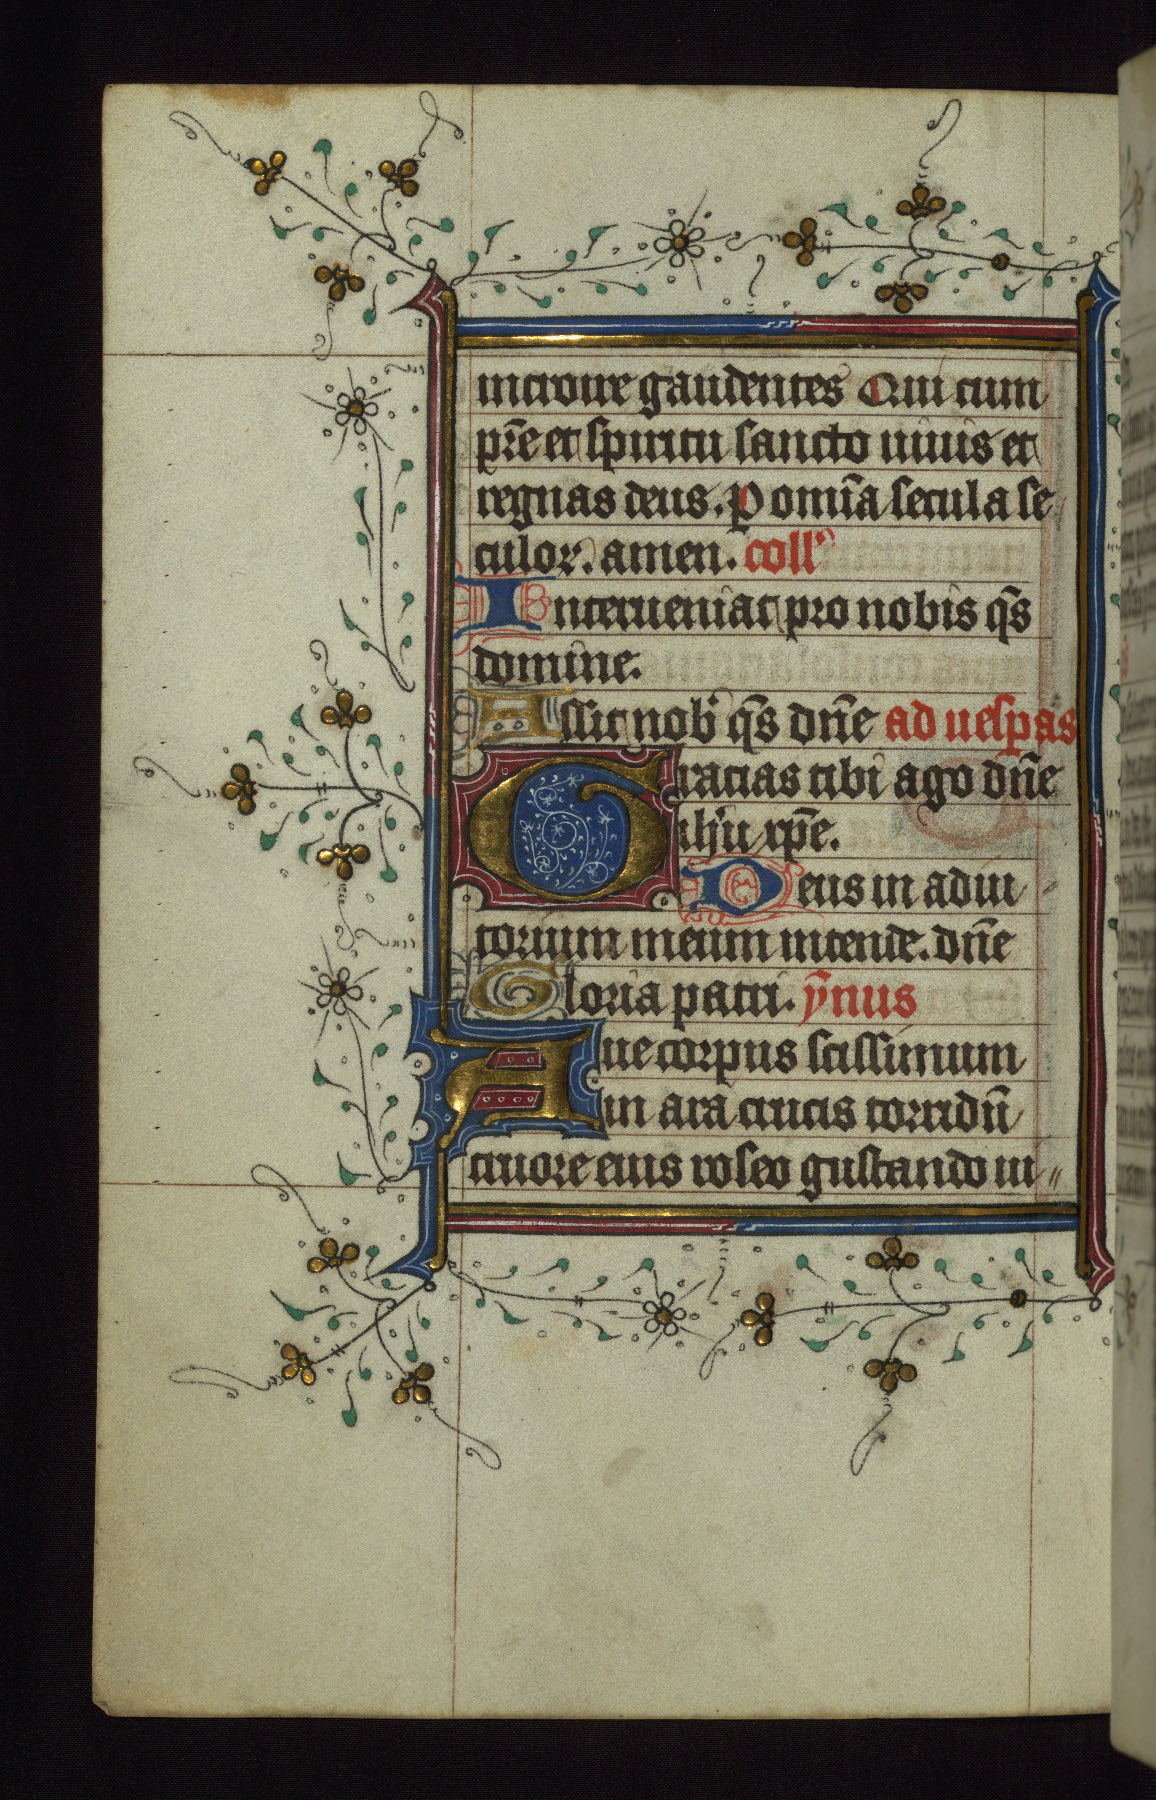 introire gaudentes Qui cum
pr̄e et spiritu sancto uiuis et
regnas deus. P om̄ia secula se
culor. amen. coll'
Interueniat pro nobis q̄s
domine.
Assit nob' q̄s dn̄e ad uesp̄as
Gracias tibi ago dn̄e
ihū xp̄e.
Deus in adiu
torium meum intende. dn̄e
Gloria patri. ȳnus
Aue corpus sc̄issimum
in ara crucis torridū
cruore eius roseo gustando ui